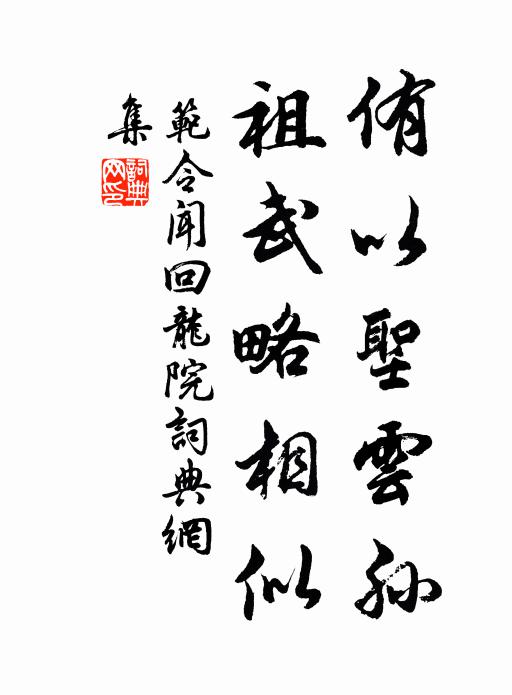 侑以聖雲孫
祖武略相似
範令聞回龍院詞典網
集
詞典
网印